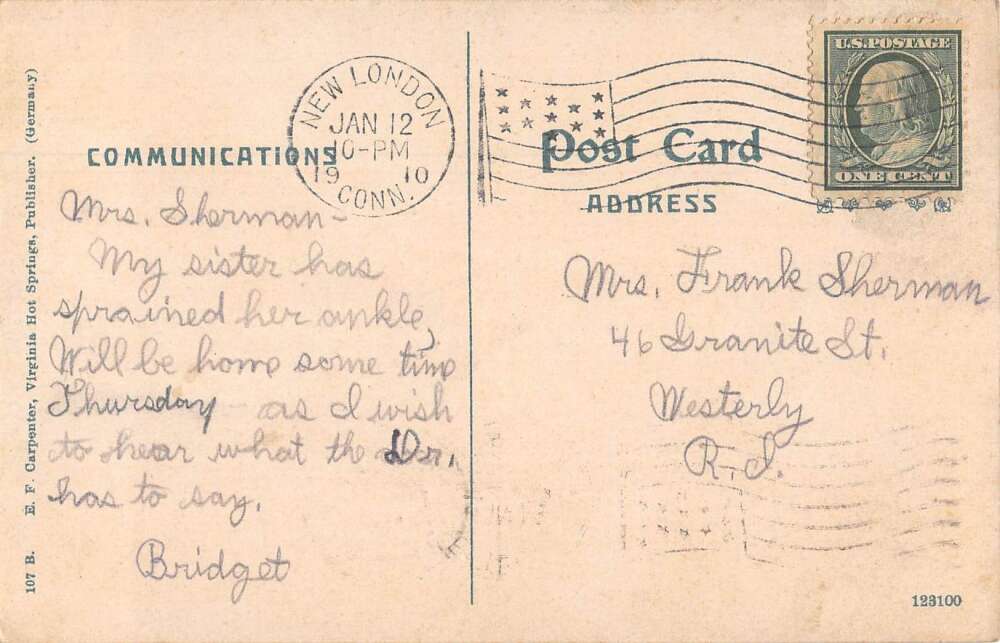 107 B. E. F. Carpenter, Virginia Hot Springs, Publisher. (Germany)
COMMUNICATIONS
NEW LONDON
JAN 12
10-PM
19 10
CONN.
Mrs. Sherman-
My sister has
sprained her ankle,
Will be home some time
Thursday - as I wish
to hear what the Dr.
has to say.
Bridget
Post Card
ADDRESS
U.S. POSTAGE
ONE CENT
Mrs. Frank Sherman
46 Granite St.
Westerly
R.I.
123100